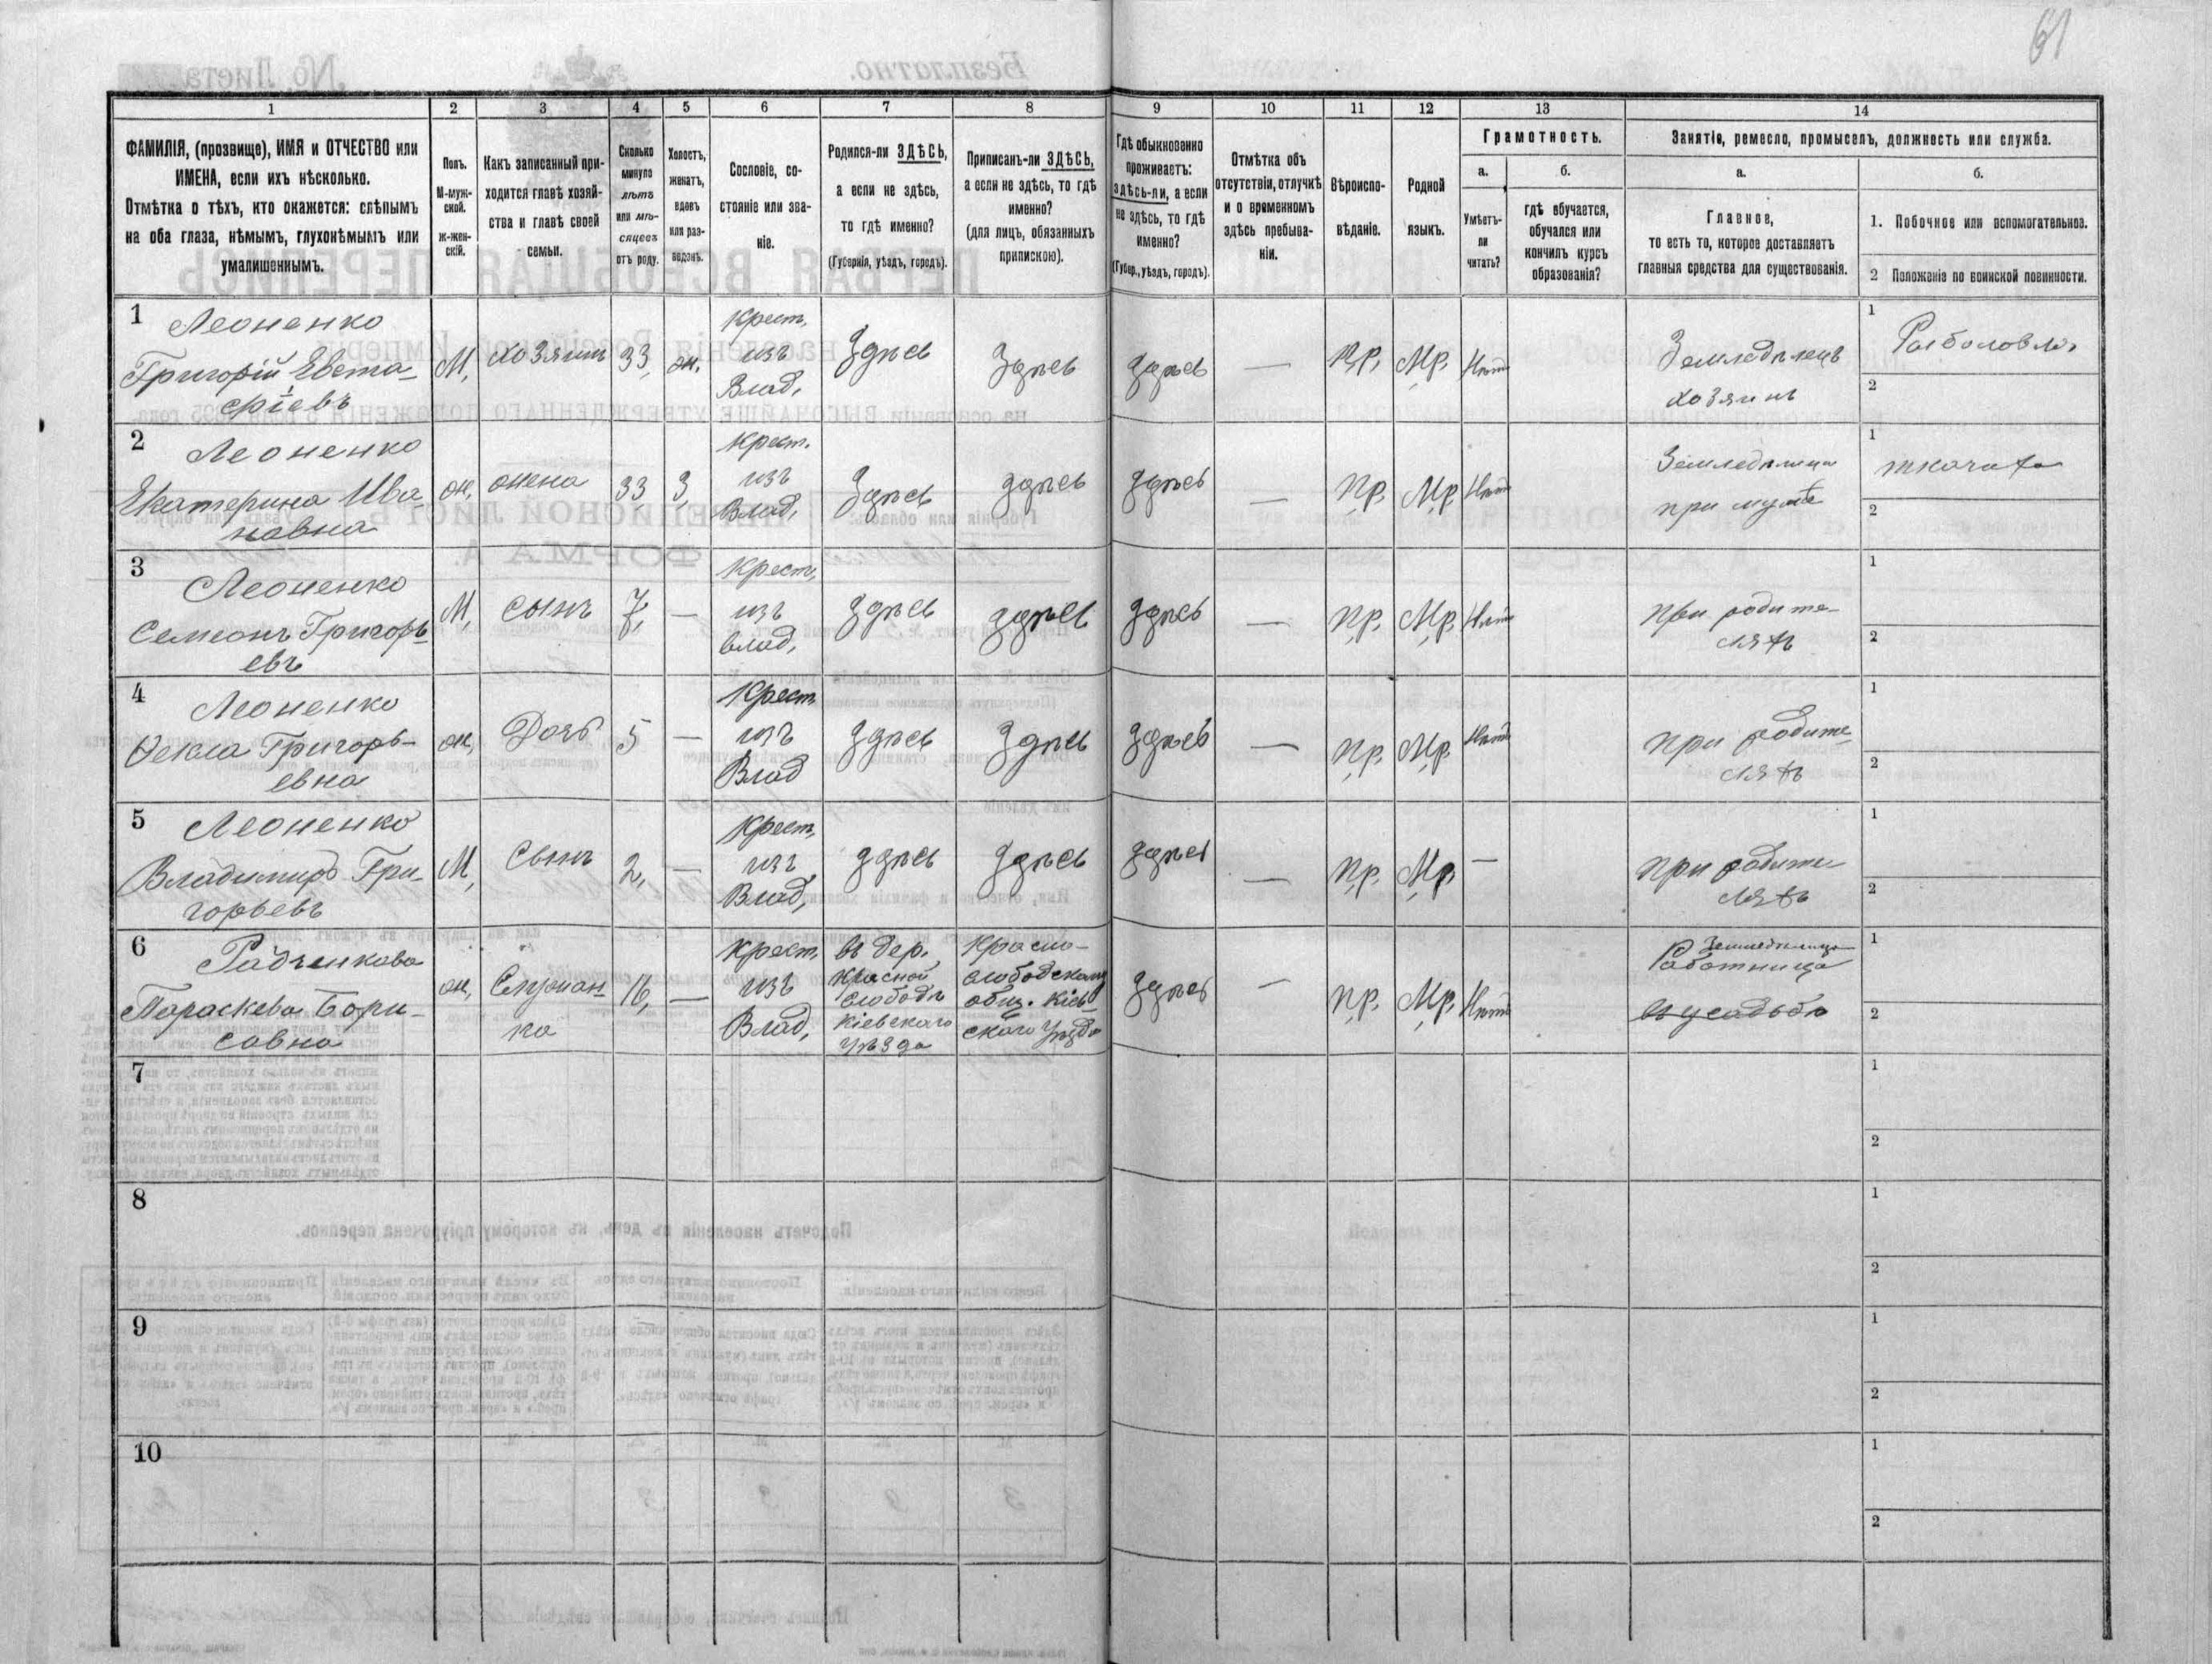 61
1 2 3 4 5 6 7 8 9 10 11 12 13 14
ФАМИЛІЯ, (прозвище), ИМЯ и ОТЧЕСТВО или
ИМЕНА, если ихъ нѣсколько.
Отмѣтка о тѣхъ, кто окажется: слѣпымъ
на оба глаза, нѣмымъ, глухонѣмымъ или
умалишеннымъ.
Полъ.
М-муж-
ской.
ж-жен-
скій.
Какъ записанный при-
ходится главѣ хозяй-
ства и главѣ своей
семьи.
Сколько
минуло
лѣтъ
или мѣ-
сяцевъ
отъ роду.
Холостъ,
женатъ,
вдовъ
или раз-
веденъ.
Сословіе, со-
стояніе или зва-
ніе.
Родился-ли ЗДѢСЬ,
а если не здѣсь,
то гдѣ именно?
(Губернія, уѣздъ, городъ).
Приписанъ-ли ЗДѢСЬ,
а если не здѣсь, то гдѣ
именно?
(для лицъ, обязанныхъ
припискою).
Гдѣ обыкновенно
проживаетъ:
здѣсь-ли, а если
не здѣсь, то гдѣ
именно?
(Губер., уѣздъ, городъ).
Отмѣтка объ
отсутствіи, отлучкѣ
и о временномъ
здѣсь пребыва-
ніи.
Вѣроиспо-
вѣданіе.
Родной
языкъ.
Грамотность.
а.
Умѣетъ-
ли
читать?
б.
гдѣ обучается,
обучался или
кончилъ курсъ
образованія?
Занятіе, ремесло, промыселъ, должность или служба.
а.
Главное,
то есть то, которое доставляетъ
главныя средства для существованія.
б.
1. Побочное или вспомогательное.
2 Положеніе по воинской повинности.
1
Леоненко
Григорій Евста-
фіевъ
М,
хозяинъ
33,
ж,
Крест,
изъ
Влад,
Здѣсь
Здѣсь
здѣсь
—
Пр,
Мр,
Нѣтъ
Земледѣлецъ
хозяинъ
1
2
2
Леоненко
Екатерина Ива-
новна
ж,
жена
33
З,
Крест.
изъ
Влад,
Здѣсь
здѣсь
здѣсь
—
Пр,
Мр
Нѣтъ
при мужѣ
1 ткачиха
2
3
Леоненко
Семенъ Григорь-
евъ
М,
сынъ
7,
—
Крест,
изъ
влад,
здѣсь
здѣсь
здѣсь
—
Пр,
Мр,
Нѣтъ
при родите-
ляхъ
1
2
4
Леоненко
Ѳекла Григорь-
евна
ж,
Дочь
5
—
Крест
изъ
Влад
здѣсь
Здѣсь
здѣсь
—
Пр,
Мр,
Нѣтъ
при родите-
ляхъ
1
2
5
Леоненко
Владимиръ Гри-
горьевъ
М,
Сынъ
2,
—
Крест,
изъ
Влад,
здѣсь
здѣсь
здѣсь
—
Пр,
Мр,
—
при родите-
ляхъ
1
2
6
Радченкова
Параскева Бори-
совна
ж,
Служан-
ка
16,
—
Крест,
изъ
Влад,
въ дер.
Красной
слободѣ
Кіевскаго
уѣзда
Красно-
слободскаго
общ. Кіев-
скаго Уѣзда
Здѣсь
—
Пр,
Мр,
Нѣтъ
Работница
въ усадьбѣ
1
2
7
1
2
8
1
2
9
1
2
10
1
2